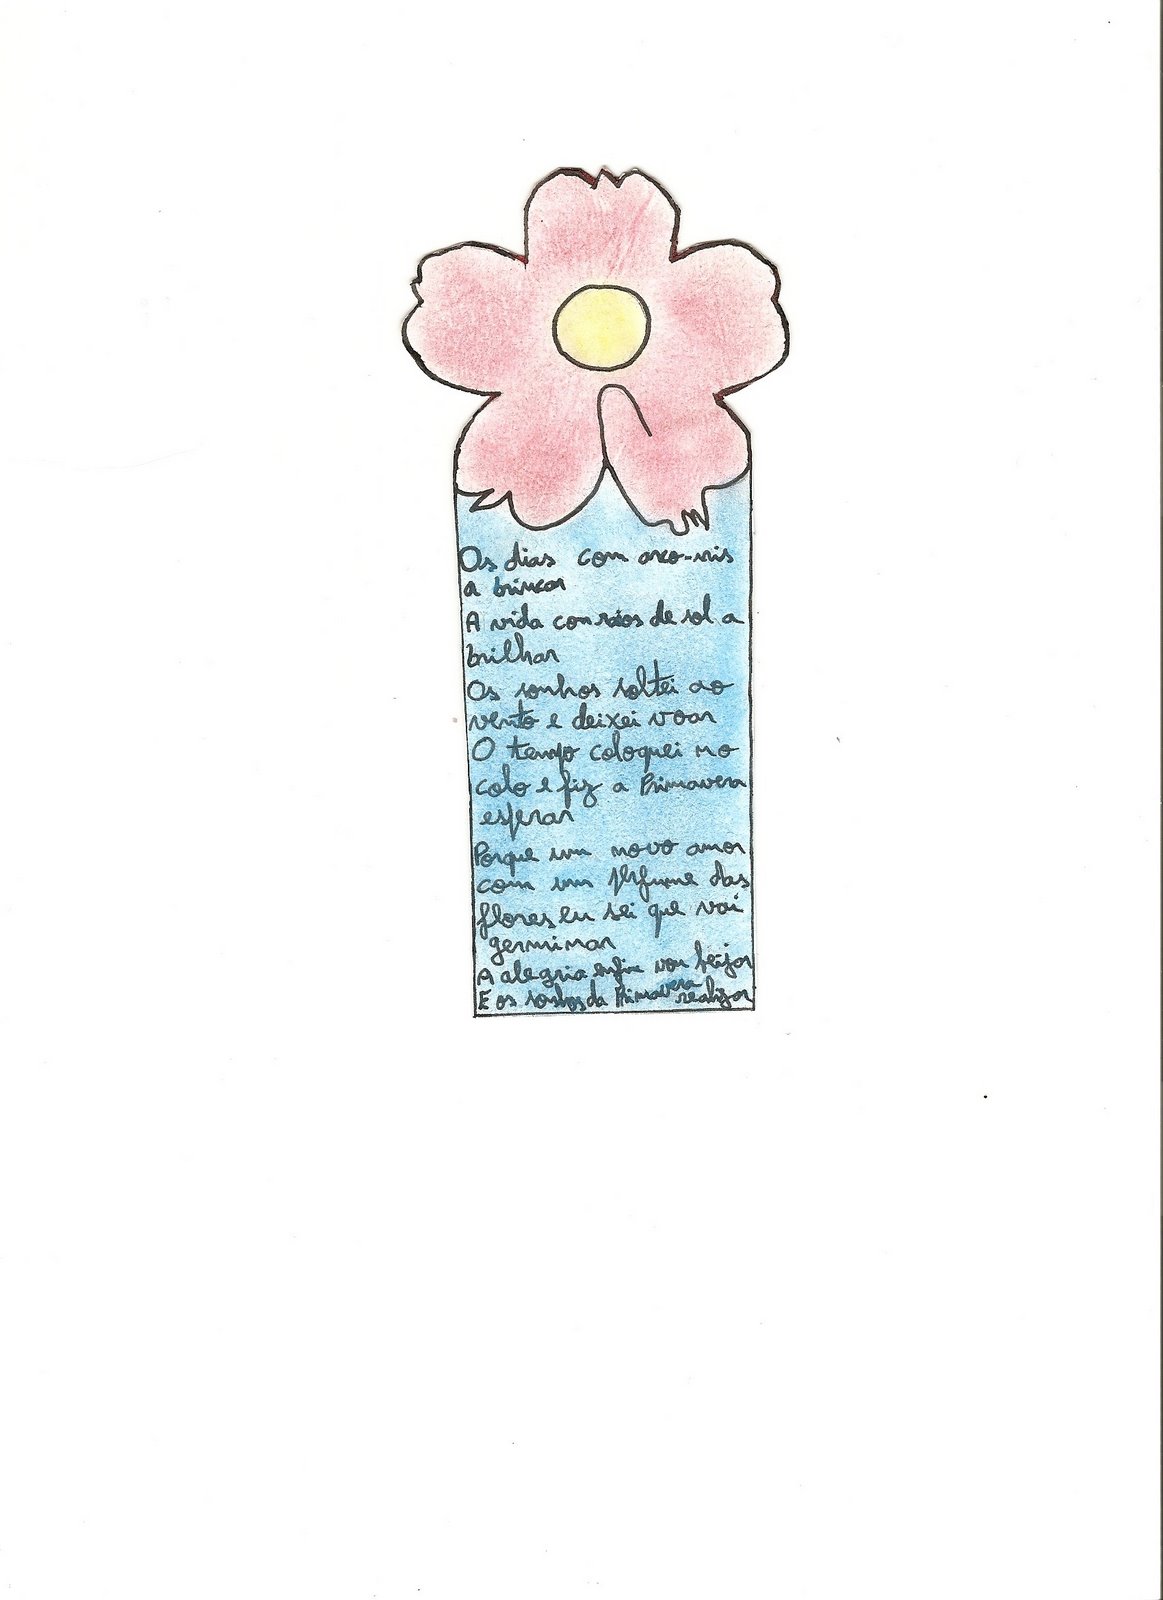 Os dias com arco-iris
a brincar
A vida com raios de sol a
brilhar
Os sonhos soltei ao
vento e deixei voar
O tempo coloquei no
colo e fiz a Primavera
esperar
Porque um novo amor
com um perfume das
flores eu sei que vai
germinar
A alegria enfim vou beijar
E os sonhos da Primavera realizar